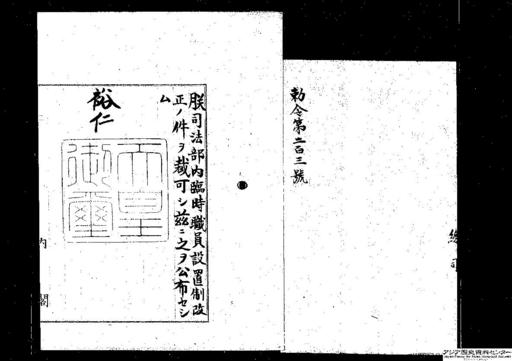 勅令第二百三號
朕司法部內臨時職員設置制改
正ノ件ヲ裁可シ茲ニ之ヲ公布セシ
ム
裕仁
天皇
御璽
內閣
アジア歴史資料センター